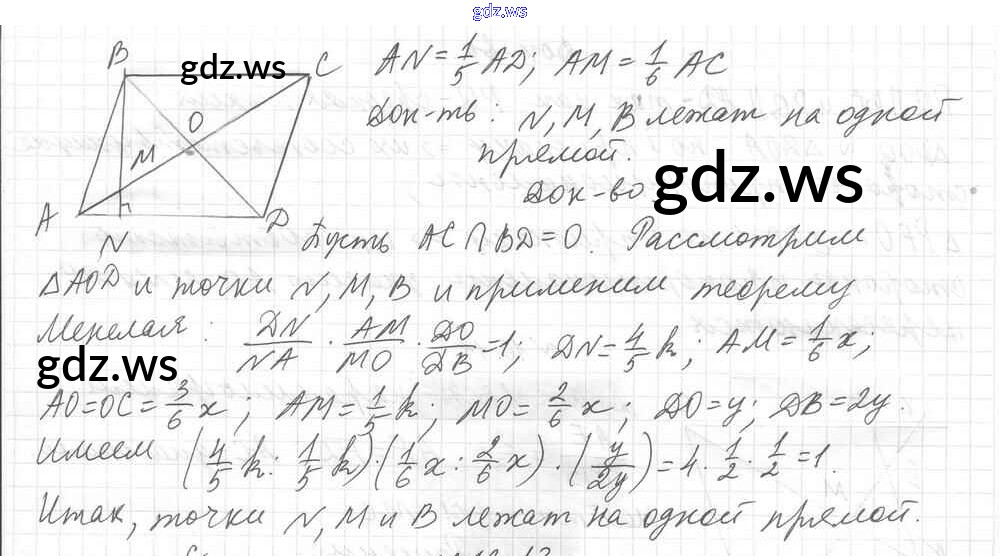 gdz.ws
B C AN = 1/5 AD; AM = 1/6 AC
gdz.ws
O Док-ть: N, M, B лежат на одной
M прямой.
gdz.ws
Док-во:
A N D Пусть AC ∩ BD = O. Рассмотрим
△AOD и точки N, M, B и применим теорему
Менелая: DN/NA · AM/MO · DO/DB = 1; DN = 4/5 k; AM = 1/6 x;
gdz.ws
AO = OC = 3/6 x; AM = 1/5 k; MO = 2/6 x; DO = y; DB = 2y.
Имеем (4/5 k : 1/5 k) · (1/6 x : 2/6 x) · (y/2y) = 4 · 1/2 · 1/2 = 1.
Итак, точки N, M и B лежат на одной прямой.